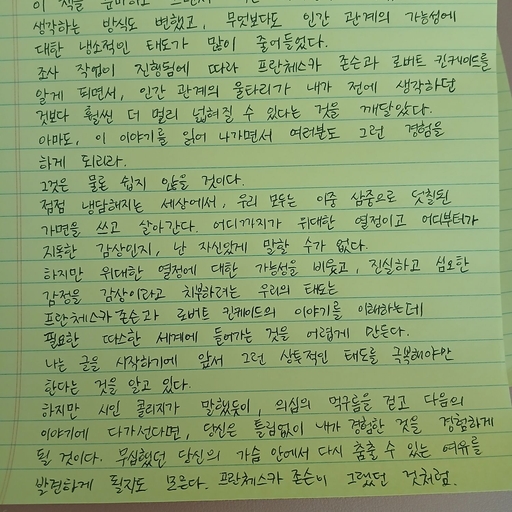 생각하는 방식도 변했고, 무엇보다도 인간 관계의 가능성에
대한 냉소적인 태도가 많이 줄어들었다.
조사 작업이 진행됨에 따라 프란체스카 존슨과 로버트 킨케이드를
알게 되면서, 인간 관계의 울타리가 내가 전에 생각하던
것보다 훨씬 더 멀리 넓혀질 수 있다는 것을 깨달았다.
아마도, 이 이야기를 읽어 나가면서 여러분도 그런 경험을
하게 되리라.
그것은 물론 쉽지 않을 것이다.
점점 냉담해지는 세상에서, 우리 모두는 이중 삼중으로 덧칠된
가면을 쓰고 살아간다. 어디까지가 위대한 열정이고 어디부터가
지독한 감상인지, 난 자신있게 말할 수가 없다.
하지만 위대한 열정에 대한 가능성을 비웃고, 진실하고 심오한
감정을 감상이라고 치부하려는 우리의 태도는
프란체스카 존슨과 로버트 킨케이드의 이야기를 이해하는데
필요한 따스한 세계에 들어가는 것을 어렵게 만든다.
나는 글을 시작하기에 앞서 그런 상투적인 태도를 극복해야만
한다는 것을 알고 있다.
하지만 시인 콜리지가 말했듯이, 의심의 먹구름을 걷고 다음의
이야기에 다가선다면, 당신은 틀림없이 내가 경험한 것을 경험하게
될 것이다. 무심했던 당신의 가슴 안에서 다시 춤출 수 있는 여유를
발견하게 될지도 모른다. 프란체스카 존슨이 그랬던 것처럼.